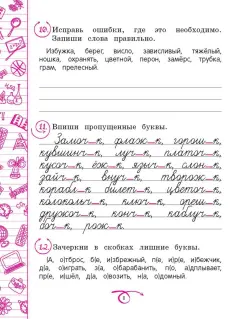 10. Исправь ошибки, где это необходимо.
Запиши слова правильно.
Избужка, берег, висло, зависливый, тяжёлый,
ношка, охранять, цветной, перон, замёрс, трубка,
грам, прелесный.
11. Впиши пропущенные буквы.
Замоч_к, флаж_к, горош_к,
кувшинч_к, луч_к, платоч_к,
кусоч_к, ёж_к, язык_к, слон_к,
зайч_к, внуч_к, творож_к,
корабл_к, билет_к, цветоч_к,
колокольч_к, ключ_к, ореш_к,
дружоч_к, конч_к, каблуч_к,
боч_к, рож_к.
12. Зачеркни в скобках лишние буквы.
(А, о)тброс, б(е, и)збрежный, п(е, и)ри(е, и)бежчик,
д(а, о)играть, з(а, о)барабанить, п(а, о)дплывает,
пр(е, и)шёл, д(а, о)возить, н(а, о)домный.